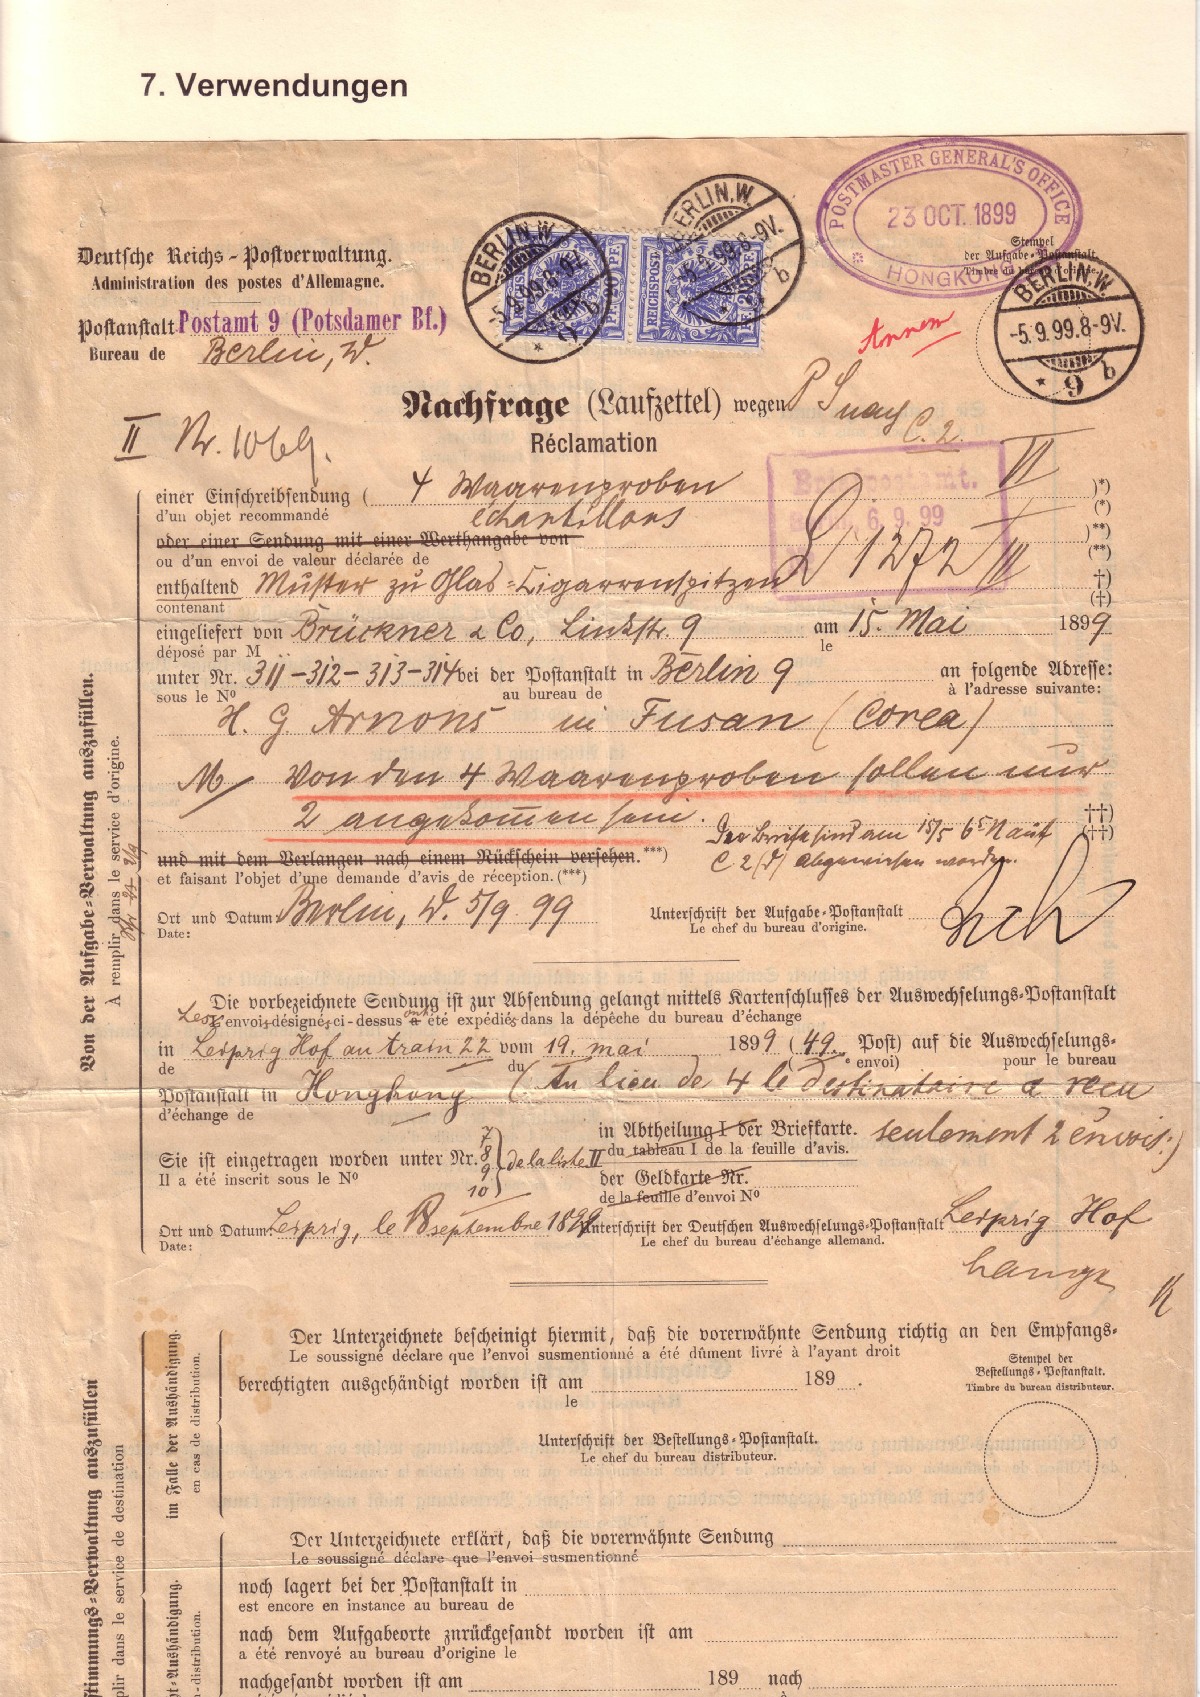 7. Verwendungen
POSTMASTER GENERAL'S OFFICE
23 OCT. 1899
HONGKONG
Deutsche Reichs-Postverwaltung.
Administration des postes d'Allemagne.
Postanstalt Postamt 9 (Potsdamer Bf.)
Bureau de Berlin, W.
BERLIN, W.
-5.9.99.8-9V.
9 b
REICHSPOST
BERLIN, W.
-5.9.99.8-9V.
b
Stempel
der Aufgabe-Postanstalt.
Timbre du bureau d'origine.
BERLIN, W.
-5.9.99.8-9V.
* 9 b
Nachfrage (Laufzettel) wegen
C. 2.
Réclamation
II Nr. 1069.
VI
einer Einschreibsendung ( 4 Waarenproben )*)
d'un objet recommandé échantillons (*)
6. 9. 99
oder einer Sendung mit einer Werthangabe von )**)
ou d'un envoi de valeur déclarée de (**)
1272 III
enthaltend Muster zu Glas-Cigarrenspitzen †)
contenant (†)
eingeliefert von Brückner & Co, Linkstr. 9 am 15. Mai 1899
déposé par M le
unter Nr. 311-312-313-314 bei der Postanstalt in Berlin 9 an folgende Adresse:
sous le No au bureau de à l'adresse suivante:
H. G. Arnons in Fusan (Corea)
Von den 4 Waarenproben sollen nur
2 angekommen sein. ††)
(††)
Die Briefe sind am 15/5 6 5 N auf
C 2 abgewiesen worden.
und mit dem Verlangen nach einem Rückschein versehen.***)
et faisant l'objet d'une demande d'avis de réception.(***)
Ort und Datum Berlin, W. 5/9 99 Unterschrift der Aufgabe-Postanstalt
Date: Le chef du bureau d'origine.
Von der Aufgabe-Verwaltung auszufüllen.
À remplir dans le service d'origine.
Die vorbezeichnete Sendung ist zur Absendung gelangt mittels Kartenschlusses der Auswechselungs-Postanstalt
Les envois désignés ci-dessus ont été expédiés dans la dépêche du bureau d'échange
in Leipzig Hof au train 22 vom 19. mai 1899 (49. Post) auf die Auswechselungs-
de du (° envoi) pour le bureau
Postanstalt in Hongkong (Au lieu de 4 le destinataire a reçu
d'échange de
seulement 2 envois.)
in Abtheilung I der Briefkarte.
du tableau I de la feuille d'avis.
Sie ist eingetragen worden unter Nr. 7 8 9 10 de la liste II
Il a été inscrit sous le No
der Geldkarte Nr.
de la feuille d'envoi No
Ort und Datum: Leipzig, le 8 septembre 1899 Unterschrift der Deutschen Auswechselungs-Postanstalt Leipzig Hof
Date: Le chef du bureau d'échange allemand.
Lange
Der Unterzeichnete bescheinigt hiermit, daß die vorerwähnte Sendung richtig an den Empfangs-
Le soussigné déclare que l'envoi susmentionné a été dûment livré à l'ayant droit
berechtigten ausgehändigt worden ist am 189 .
le
Stempel der
Bestellungs-Postanstalt.
Timbre du bureau distributeur.
Unterschrift der Bestellungs-Postanstalt.
Le chef du bureau distributeur.
im Falle der Aushändigung.
en cas de distribution.
Der Unterzeichnete erklärt, daß die vorerwähnte Sendung
Le soussigné déclare que l'envoi susmentionné
noch lagert bei der Postanstalt in
est encore en instance au bureau de
nach dem Aufgabeorte zurückgesandt worden ist am
a été renvoyé au bureau d'origine le
nachgesandt worden ist am 189 nach